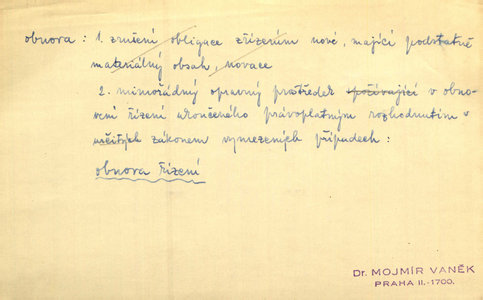 obnova : 1. zrušení obligace zřízením nové, mající podstatně
materiálný obsah, novace
2. mimořádný opravný prostředek spočívající v obno-
vení řízení ukončeného právoplatným rozhodnutím v
určitých zákonem vymezených případech :
obnova řízení
Dr. MOJMÍR VANĚK
PRAHA II.-1700.